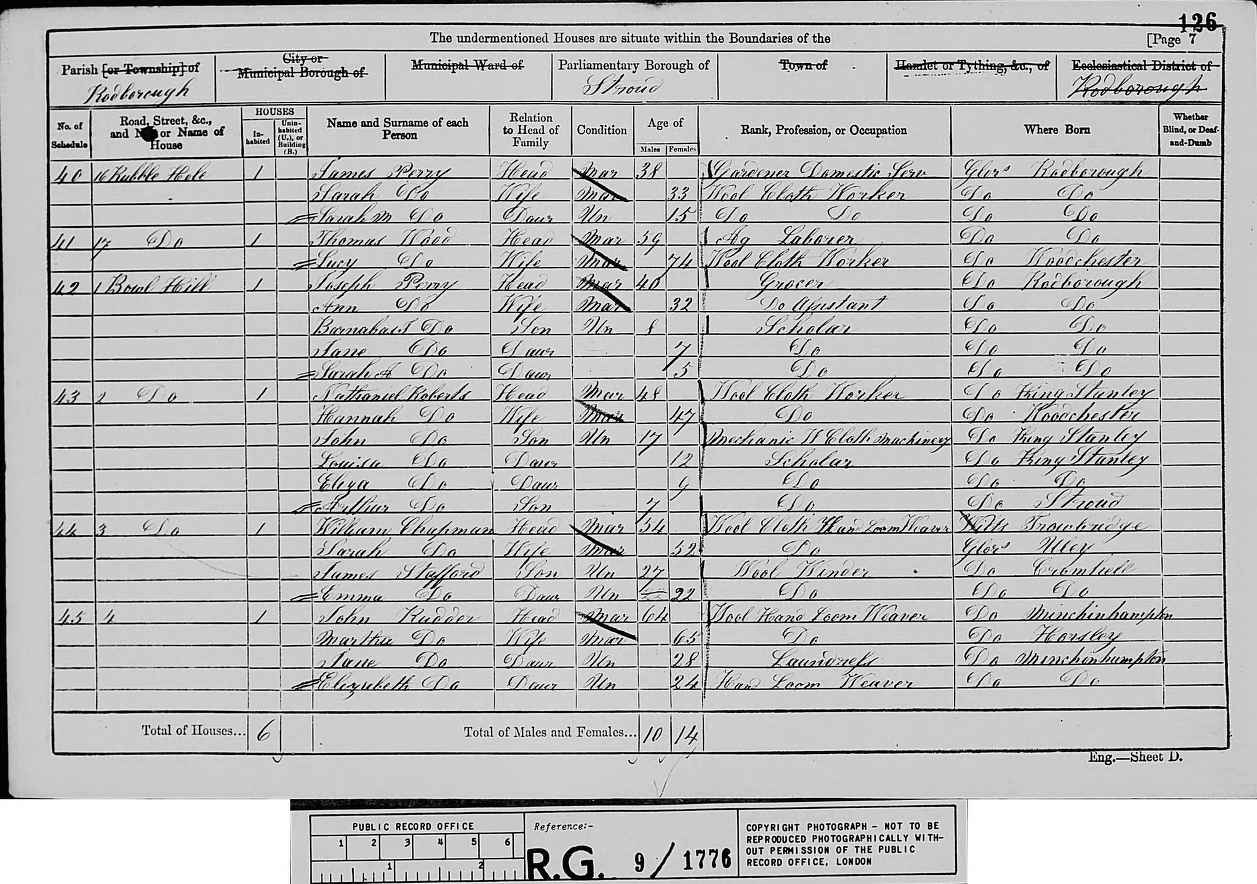 126
The undermentioned Houses are situate within the Boundaries of the
[Page 7
Parish [or Township] of
City or
Municipal Borough of
Municipal Ward of
Parliamentary Borough of
Town of
Hamlet or Tything, &c., of
Ecclesiastical District of
Rodborough
Stroud
Rodborough
No. of Schedule
Road, Street, &c., and No. or Name of House
HOUSES
In-habited
Unin-habited (U.), or Building (B.)
Name and Surname of each Person
Relation to Head of Family
Condition
Age of
Males
Females
Rank, Profession, or Occupation
Where Born
Whether Blind, or Deaf-and-Dumb
40 16 Rubble Hole 1 James Perry Head Mar 38 Gardener Domestic Serv Glos Rodborough
Sarah Do Wife Mar 33 Wool Cloth Worker Do Do
Sarah M Do Daur Un 15 Do Do Do Do
41 17 Do 1 Thomas Wood Head Mar 59 Ag Laborer Do Do
Lucy Do Wife Mar 74 Wool Cloth Worker Do Woodchester
42 1 Bowl Hill 1 Joseph Perry Head Mar 40 Grocer Do Rodborough
Ann Do Wife Mar 32 Do Assistant Do Do
Barnabas Do Son Un 8 Scholar Do Do
Jane Do Daur 7 Do Do Do
Sarah A Do Daur 5 Do Do Do
43 2 Do 1 Nathaniel Roberts Head Mar 48 Wool Cloth Worker Do King Stanley
Hannah Do Wife Mar 47 Do Do Woodchester
John Do Son Un 17 Mechanic W Cloth Machinery Do King Stanley
Louisa Do Daur 12 Scholar Do King Stanley
Eliza Do Daur 9 Do Do Do
Arthur Do Son 7 Do Do Stroud
44 3 Do 1 William Chapman Head Mar 54 Wool Cloth Hand Loom Weaver Wilts Trowbridge
Sarah Do Wife Mar 52 Do Glos Uley
James Stafford Son Un 27 Wool Winder Do Cromhall
Emma Do Daur Un 22 Do Do Do
45 4 1 John Rudder Head Mar 64 Wool Hand Loom Weaver Do Minchinhampton
Martha Do Wife Mar 65 Do Do Horsley
Jane Do Daur Un 28 Laundress Do Minchinhampton
Elizabeth Do Daur Un 24 Hand Loom Weaver Do Do
Total of Houses... 6
Total of Males and Females... 10 14
Eng.—Sheet D.
PUBLIC RECORD OFFICE
1 2 3 4 5 6
1 2
Reference:-
R.G. 9/1776
COPYRIGHT PHOTOGRAPH - NOT TO BE
REPRODUCED PHOTOGRAPHICALLY WITH-
OUT PERMISSION OF THE PUBLIC
RECORD OFFICE, LONDON